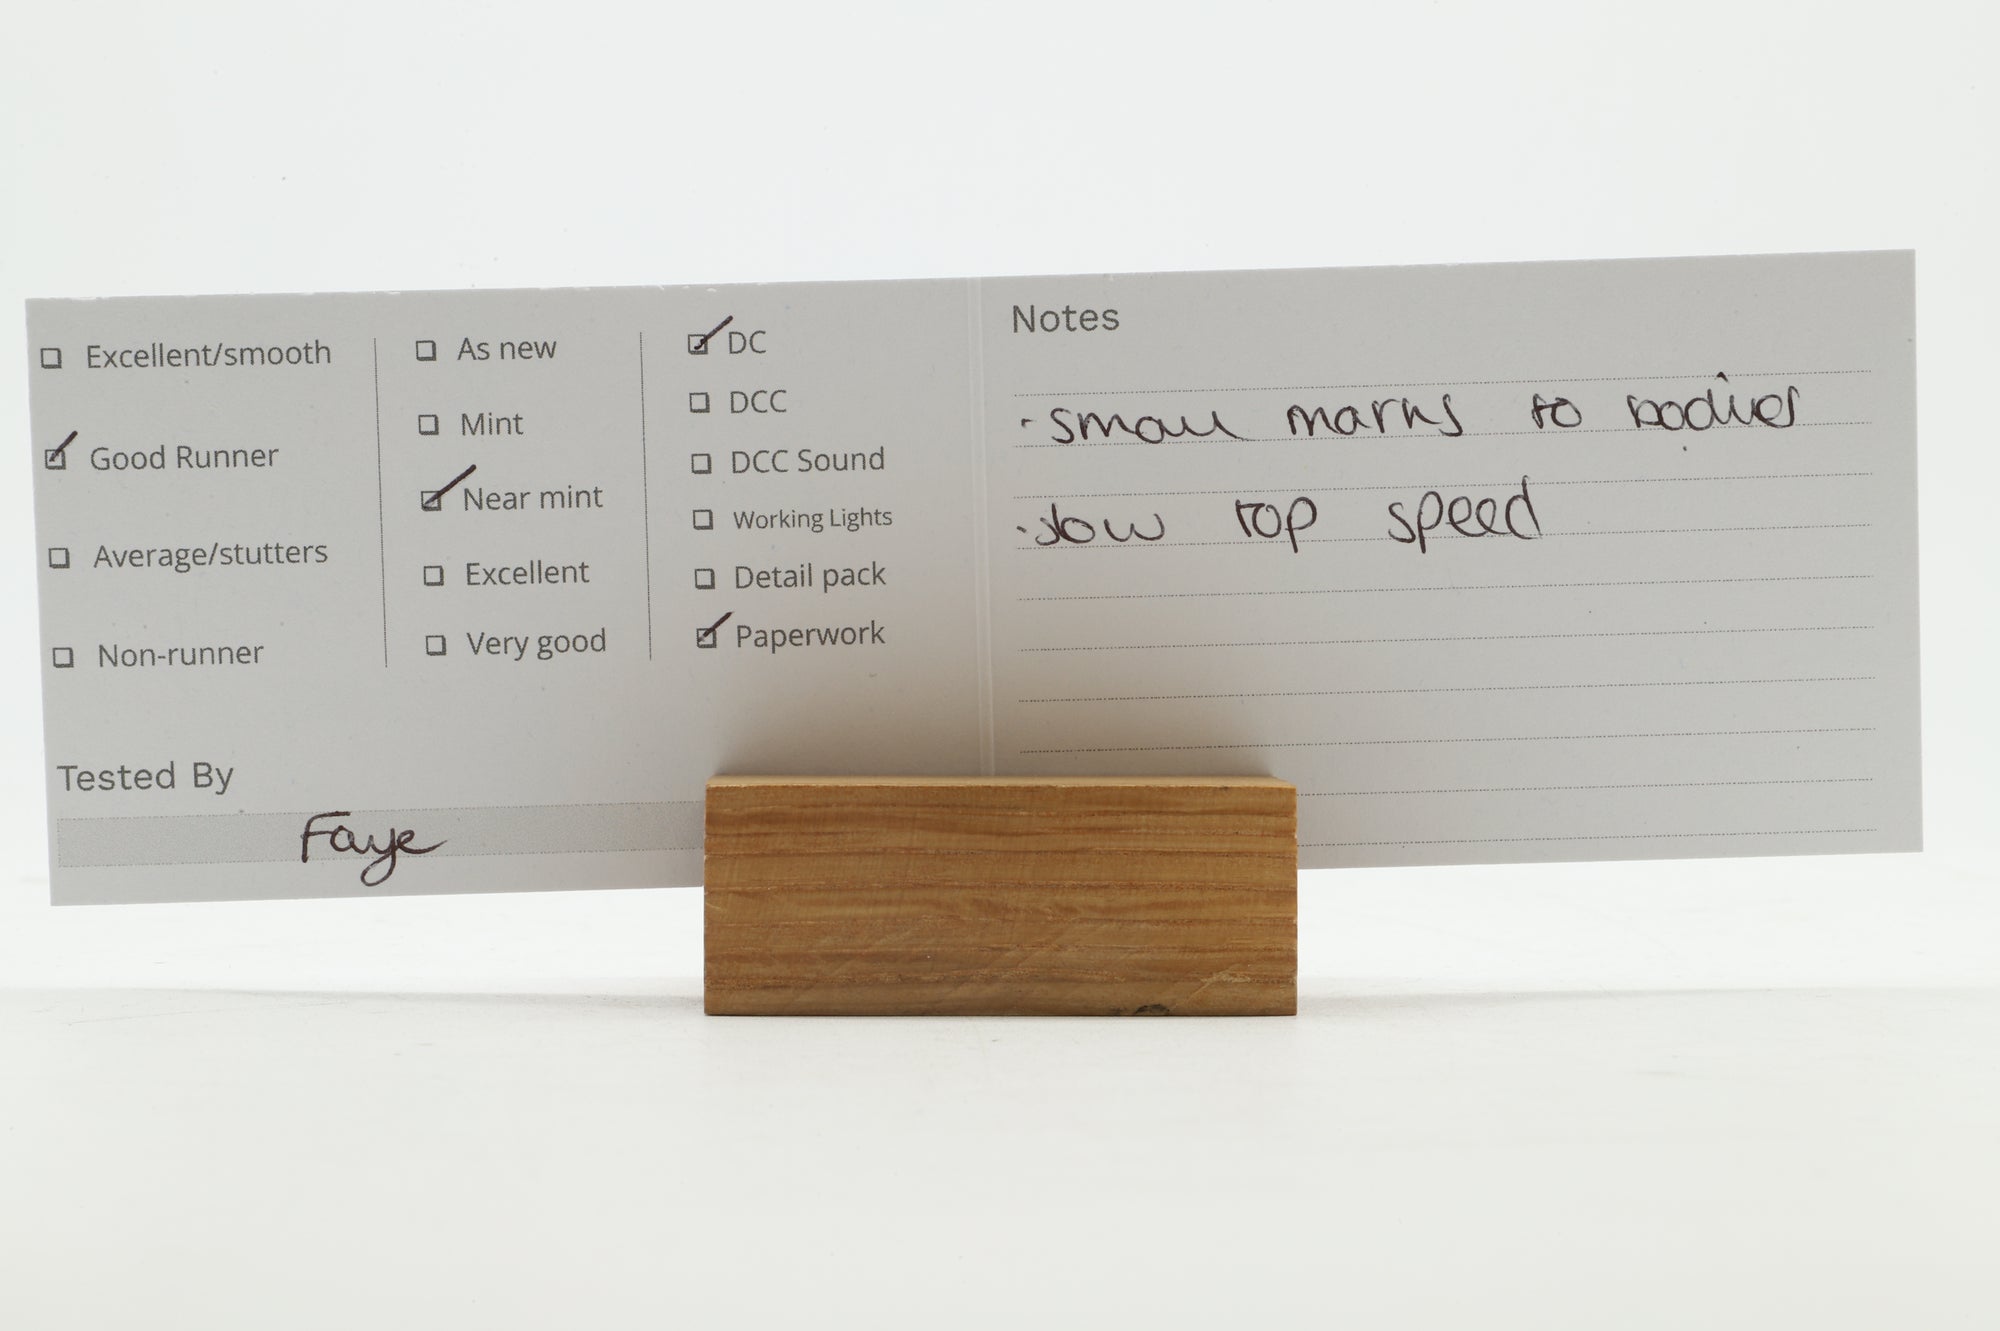 Excellent/smooth
Good Runner
Average/stutters
Non-runner
As new
Mint
Near mint
Excellent
Very good
DC
DCC
DCC Sound
Working Lights
Detail pack
Paperwork
Tested By
Faye
Notes
· small marks to bodies
· slow top speed